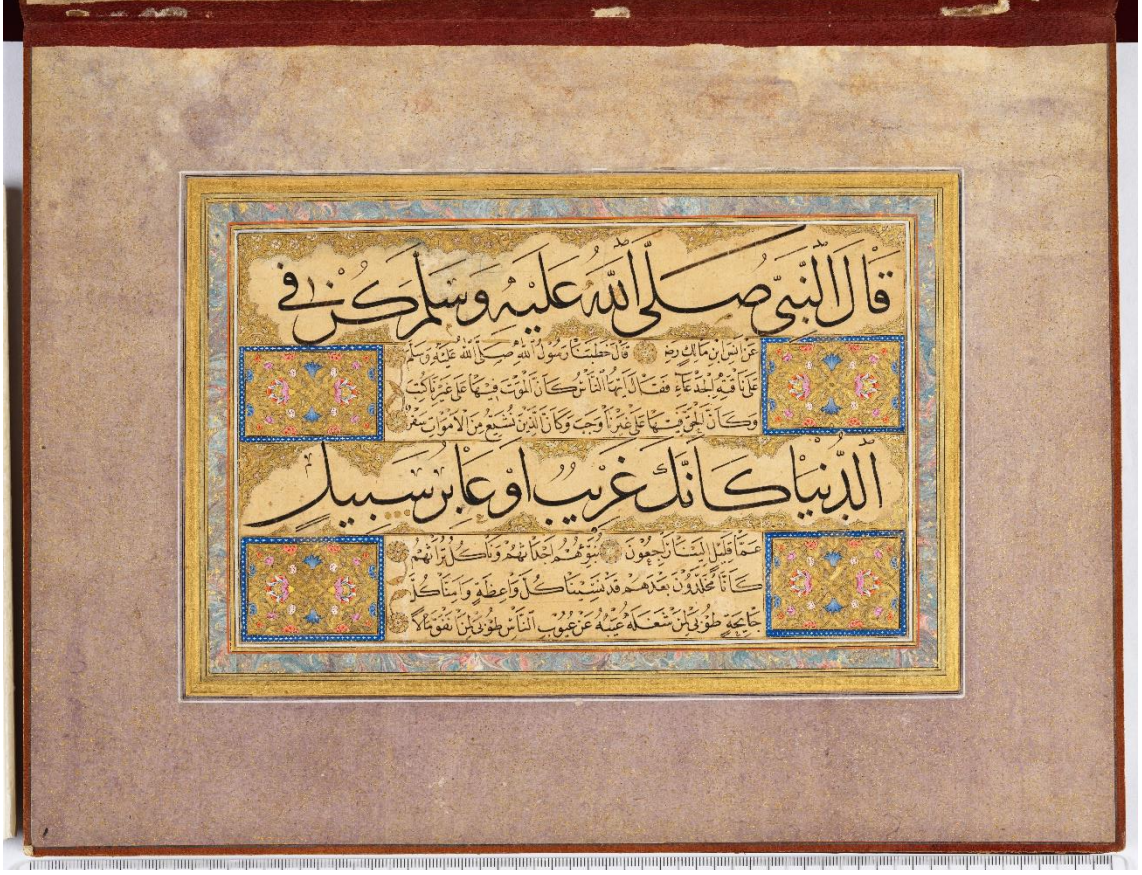 قَالَ النَّبِيُّ صَلَّى اللّٰهُ عَلَيْهِ وَسَلَّمَ كُنْ فِي
عَنْ أَنَسِ ابْنِ مَالِكٍ رضـ قَالَ خَطَبَنَا رَسُولُ اللّٰهِ صَلَّى اللّٰهُ عَلَيْهِ وَسَلَّمَ
عَلَى نَاقَتِهِ الْجَدْعَاءِ فَقَالَ أَيُّهَا النَّاسُ كَانَ الْمَوْتَ فِيهَا عَلَى غَيْرِنَا كُتِبَ
وَكَانَ الْحَقَّ فِيهَا عَلَى غَيْرِنَا وَجَبَ وَكَانَ الَّذِينَ نُشَيِّعُ مِنَ الْأَمْوَاتِ سَفْرٌ
الدُّنْيَا كَانَّكَ غَرِيبٌ اَوْ عَابِرُ سَبِيلٍ
عَمَّا قَلِيلٍ اِلَيْنَا رَاجِعُونَ نُبَوِّئُهُمْ اَجْدَاثَهُمْ وَنَأْكُلُ تُرَاثَهُمْ
كَانَّا مُخَلَّدُونَ بَعْدَهُمْ قَدْ نَسِينَا كُلَّ وَاعِظَةٍ وَاَمِنَّا كُلَّ
جَايِحَةٍ طُوبَى لِمَنْ شَغَلَهُ عَيْبُهُ عَنْ عُيُوبِ النَّاسِ طُوبَى لِمَنْ